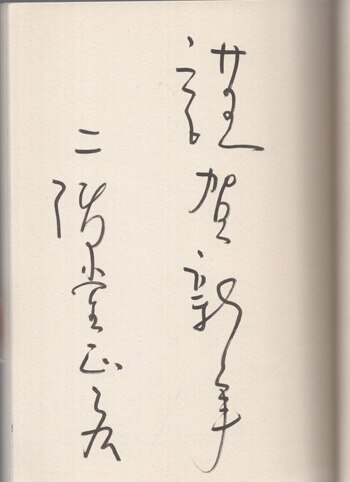 謹賀新年
二階堂正宏